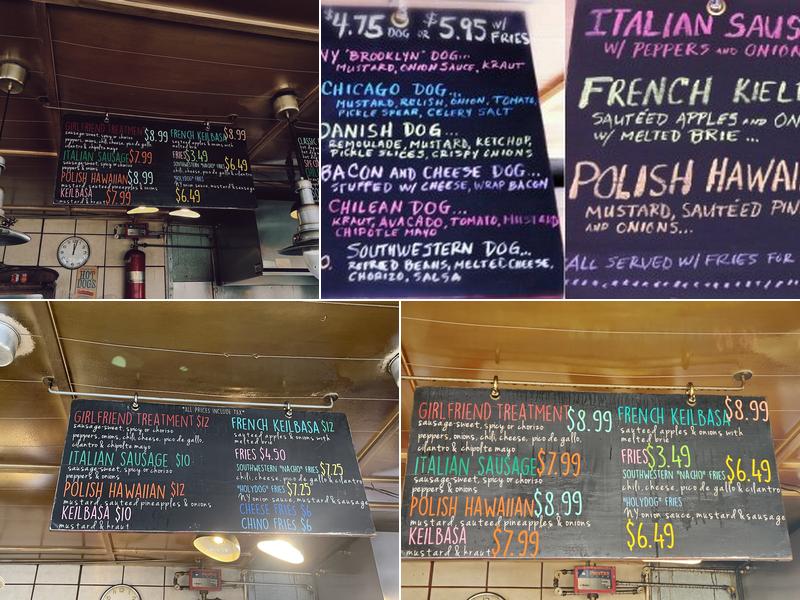 GIRLFRIEND TREATMENT $8.99
sausage-sweet, spicy or chorizo
peppers, onions, chili, cheese, pico de gallo,
cilantro & chipolte mayo
ITALIAN SAUSAGE $7.99
sausage-sweet, spicy or chorizo
peppers & onions
POLISH HAWAIIAN $8.99
mustard, sauteed pineapples & onions
KEILBASA $7.99
FRENCH KEILBASA $8.99
sauteed apples & onions with
melted brie
FRIES $3.49
SOUTHWESTERN "NACHO" FRIES $6.49
chili, cheese, pico de gallo & cilantro
"HOLYDOG" FRIES
NY onion sauce, mustard & sausage
$6.49
CLASSIC
HOT
DOGS
$4.75 DOG OR $5.95 W/
FRIES
NY "BROOKLYN" DOG...
MUSTARD, ONION SAUCE, KRAUT
CHICAGO DOG...
MUSTARD, RELISH, ONION, TOMATO,
PICKLE SPEAR, CELERY SALT
DANISH DOG...
REMOULADE, MUSTARD, KETCHUP,
PICKLE SLICES, CRISPY ONIONS
BACON AND CHEESE DOG...
STUFFED W/ CHEESE, WRAP BACON
CHILEAN DOG...
KRAUT, AVACADO, TOMATO, MUSTARD
CHIPOTLE MAYO
SOUTHWESTERN DOG...
REFRED BEANS, MELTED CHEESE,
CHORIZO, SALSA
ITALIAN SAUS
W/ PEPPERS AND ONION
FRENCH KIEL
SAUTÉED APPLES AND ON
W/ MELTED BRIE...
POLISH HAWAI
MUSTARD, SAUTÉED PIN
AND ONIONS...
ALL SERVED W/ FRIES FOR
*ALL PRICES INCLUDE TAX*
GIRLFRIEND TREATMENT $12
sausage-sweet, spicy or chorizo
peppers, onions, chili, cheese, pico de gallo,
cilantro & chipolte mayo
ITALIAN SAUSAGE $10
sausage-sweet, spicy or chorizo
peppers & onions
POLISH HAWAIIAN $12
mustard, sauteed pineapples & onions
KEILBASA $10
mustard & kraut
FRENCH KEILBASA $12
sauteed apples & onions with
melted brie
FRIES $4.50
SOUTHWESTERN "NACHO" FRIES $7.25
chili, cheese, pico de gallo & cilantro
"HOLYDOG" FRIES $7.25
NY onion sauce, mustard & sausage
CHEESE FRIES $6
CHINO FRIES $6
GIRLFRIEND TREATMENT $8.99
sausage-sweet, spicy or chorizo
peppers, onions, chili, cheese, pico de gallo,
cilantro & chipolte mayo
ITALIAN SAUSAGE $7.99
sausage-sweet, spicy or chorizo
peppers & onions
POLISH HAWAIIAN $8.99
mustard, sauteed pineapples & onions
KEILBASA
mustard & kraut $7.99
FRENCH KEILBASA $8.99
sauteed apples & onions with
melted brie
FRIES $3.49
SOUTHWESTERN "NACHO" FRIES $6.49
chili, cheese, pico de gallo & cilantro
"HOLYDOG" FRIES
NY onion sauce, mustard & sausage
$6.49